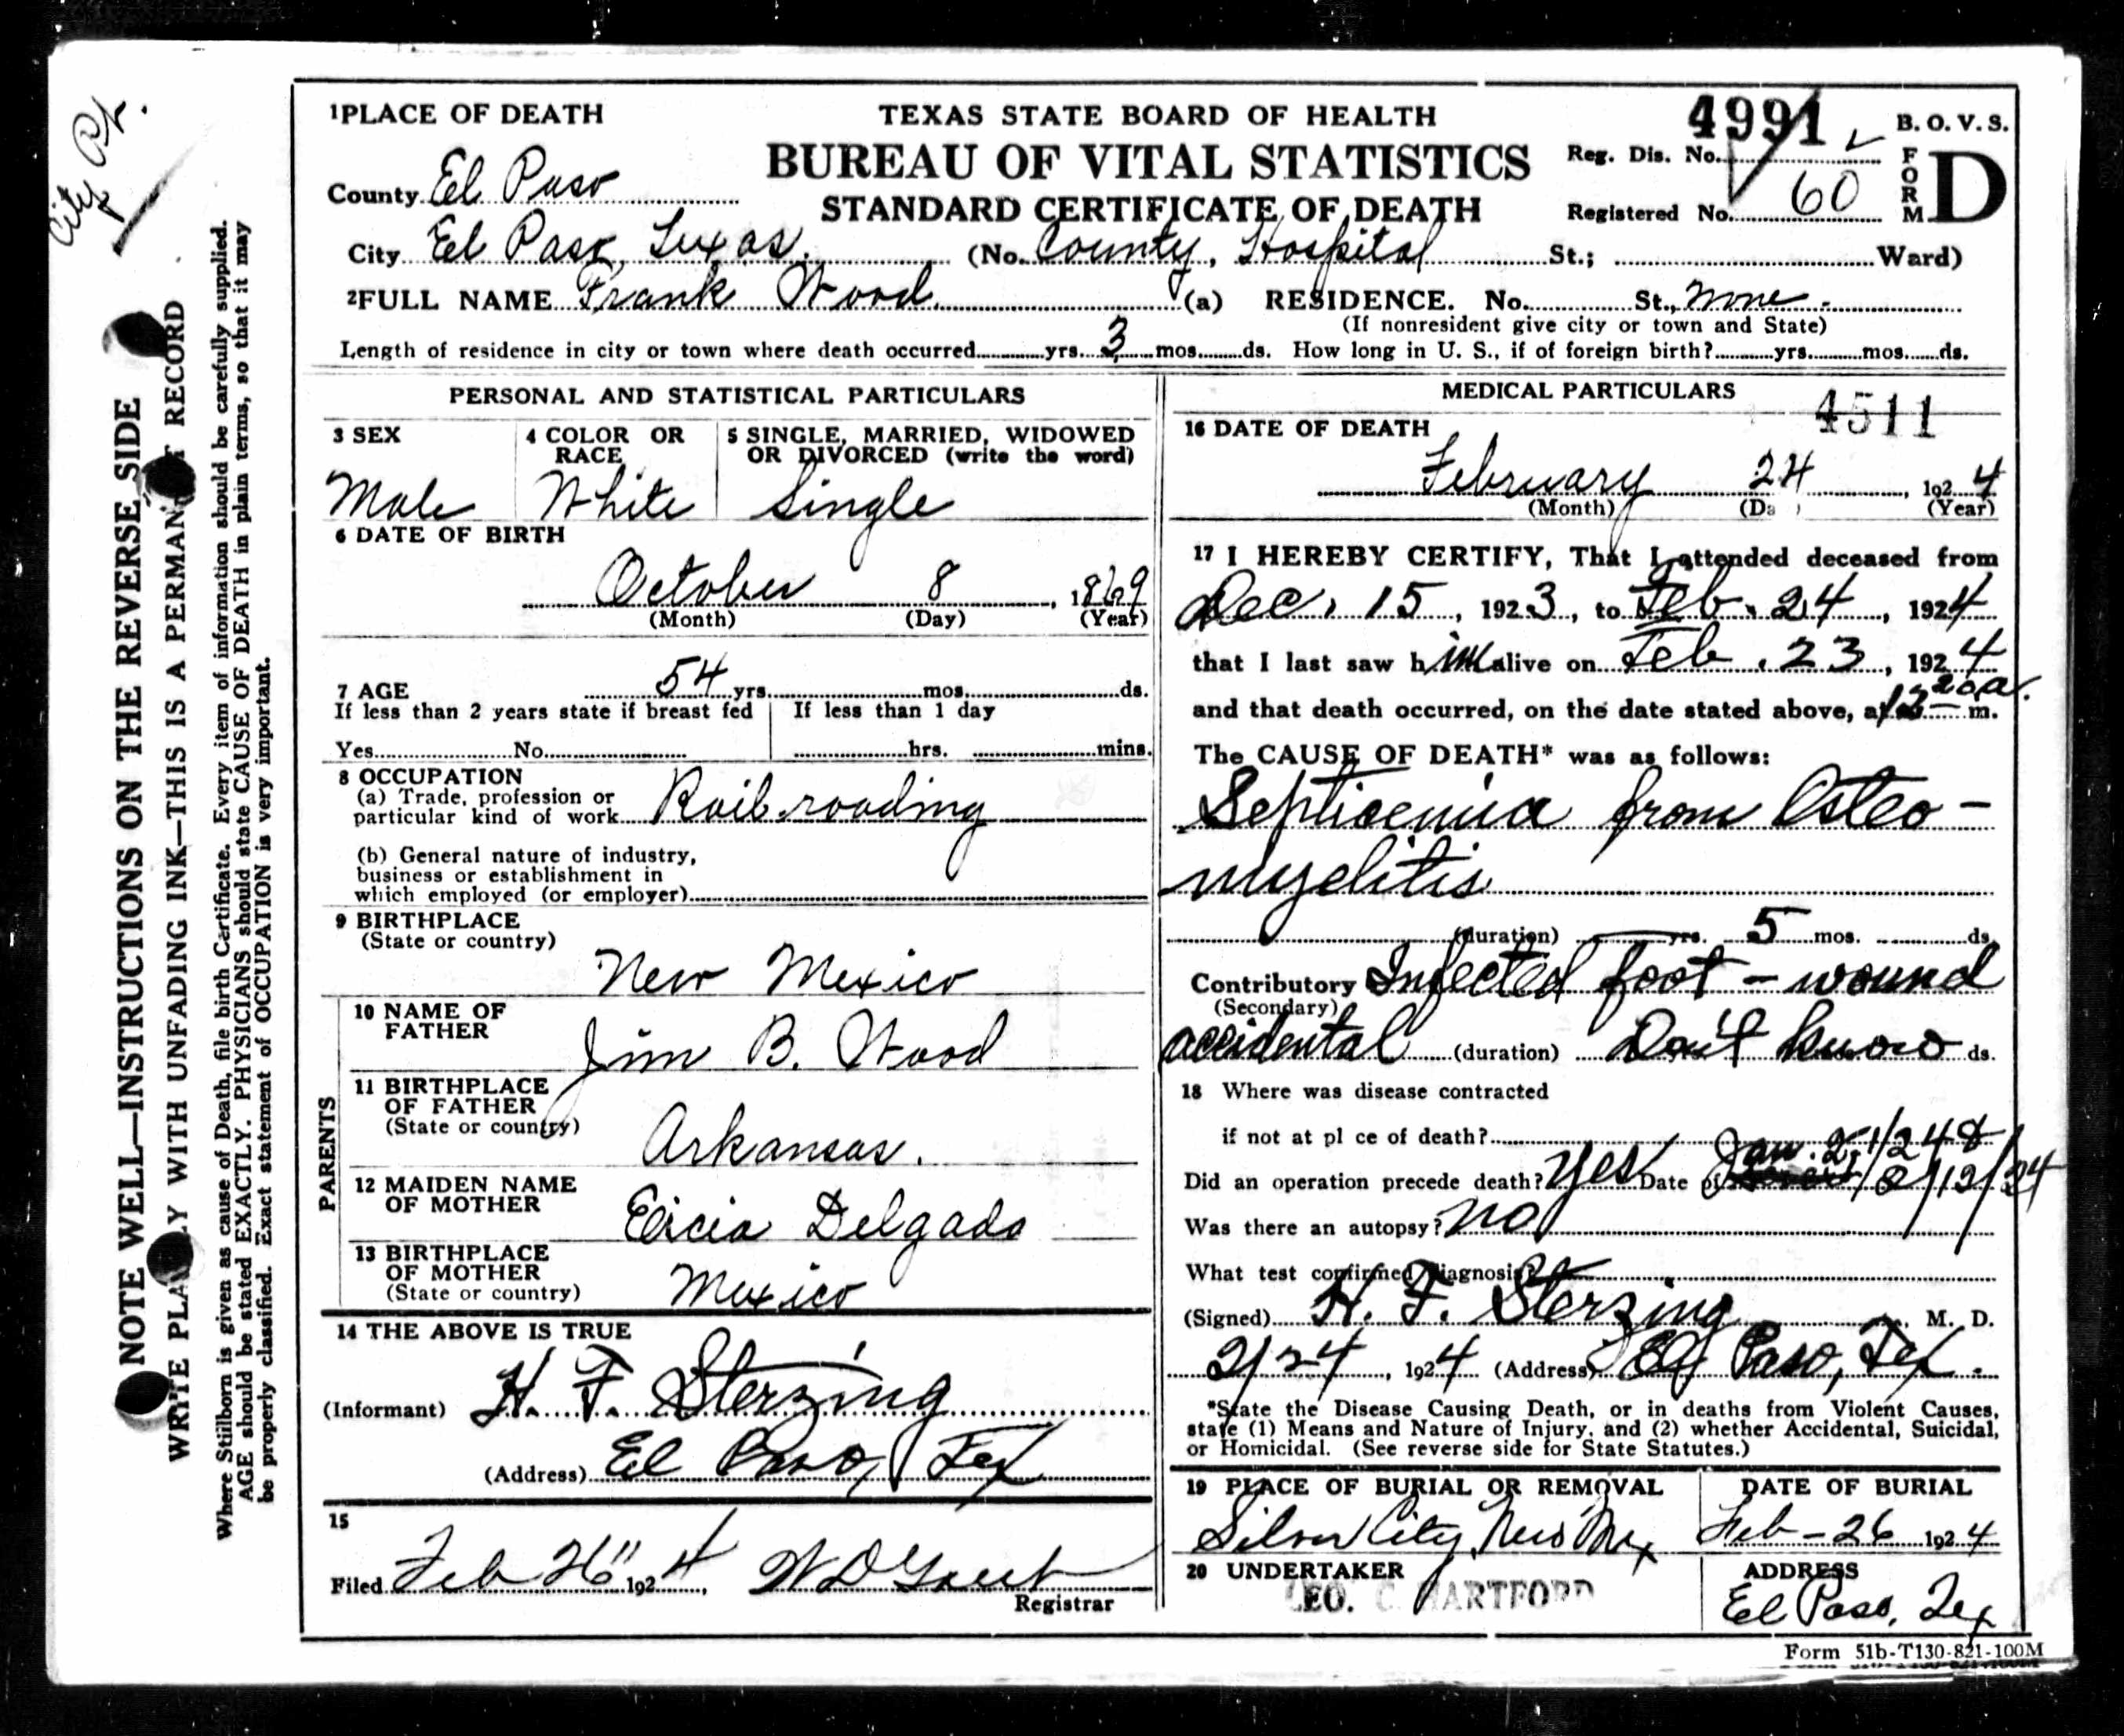 City Pt.
NOTE WELL—INSTRUCTIONS ON THE REVERSE SIDE
WRITE PLAINLY WITH UNFADING INK—THIS IS A PERMANENT RECORD
Where Stillborn is given as cause of Death, file birth Certificate. Every item of information should be carefully supplied.
AGE should be stated EXACTLY. PHYSICIANS should state CAUSE OF DEATH in plain terms, so that it may
be properly classified. Exact statement of OCCUPATION is very important.
1 PLACE OF DEATH
TEXAS STATE BOARD OF HEALTH
4991
B. O. V. S.
BUREAU OF VITAL STATISTICS
Reg. Dis. No.
FORM D
County El Paso
STANDARD CERTIFICATE OF DEATH
Registered No. 60
City El Paso, Texas. (No. County, Hospital St.; Ward)
2 FULL NAME Frank Wood (a) RESIDENCE. No. St., None.
(If nonresident give city or town and State)
Length of residence in city or town where death occurred yrs. 3 mos. ds. How long in U. S., if of foreign birth? yrs. mos. ds.
PERSONAL AND STATISTICAL PARTICULARS
3 SEX
Male
4 COLOR OR RACE
White
5 SINGLE, MARRIED, WIDOWED
OR DIVORCED (write the word)
Single
6 DATE OF BIRTH
October 8, 1869
(Month) (Day) (Year)
7 AGE 54 yrs. mos. ds.
If less than 2 years state if breast fed
If less than 1 day
Yes No hrs. mins.
8 OCCUPATION
(a) Trade, profession or
particular kind of work Railroading
(b) General nature of industry,
business or establishment in
which employed (or employer)
9 BIRTHPLACE
(State or country)
New Mexico
PARENTS
10 NAME OF
FATHER
Jim B. Wood
11 BIRTHPLACE
OF FATHER
(State or country)
Arkansas.
12 MAIDEN NAME
OF MOTHER
Delgado
13 BIRTHPLACE
OF MOTHER
(State or country)
Mexico
14 THE ABOVE IS TRUE
(Informant) H. F. Sterzing
(Address) El Paso, Tex
15
Filed Feb 26" 1924, W D
Registrar
MEDICAL PARTICULARS
4511
16 DATE OF DEATH
February 24, 1924
(Month) (Da ) (Year)
17 I HEREBY CERTIFY, That I attended deceased from
Dec. 15, 1923, to Feb. 24, 1924
that I last saw him alive on Feb. 23, 1924
and that death occurred, on the date stated above, at 12 20 a. m.
The CAUSE OF DEATH* was as follows:
Septicemia from Osteo-
myelitis
(duration) yrs. 5 mos. ds.
Contributory Infected foot - wound
(Secondary)
accidental (duration) Don't know ds.
18 Where was disease contracted
if not at pl ce of death?
Did an operation precede death? Yes Date of Jan. 2/12/24
Was there an autopsy? No
What test confirmed diagnosis?
(Signed) H. F. Sterzing, M. D.
2/24, 1924 (Address) El Paso, Tex.
*State the Disease Causing Death, or in deaths from Violent Causes,
state (1) Means and Nature of Injury, and (2) whether Accidental, Suicidal,
or Homicidal. (See reverse side for State Statutes.)
19 PLACE OF BURIAL OR REMOVAL
Silver City, New Mex
DATE OF BURIAL
Feb-26 1924
20 UNDERTAKER
GEO. C. HARTFORD
ADDRESS
El Paso, Tex
Form 51b-T130-821-100M